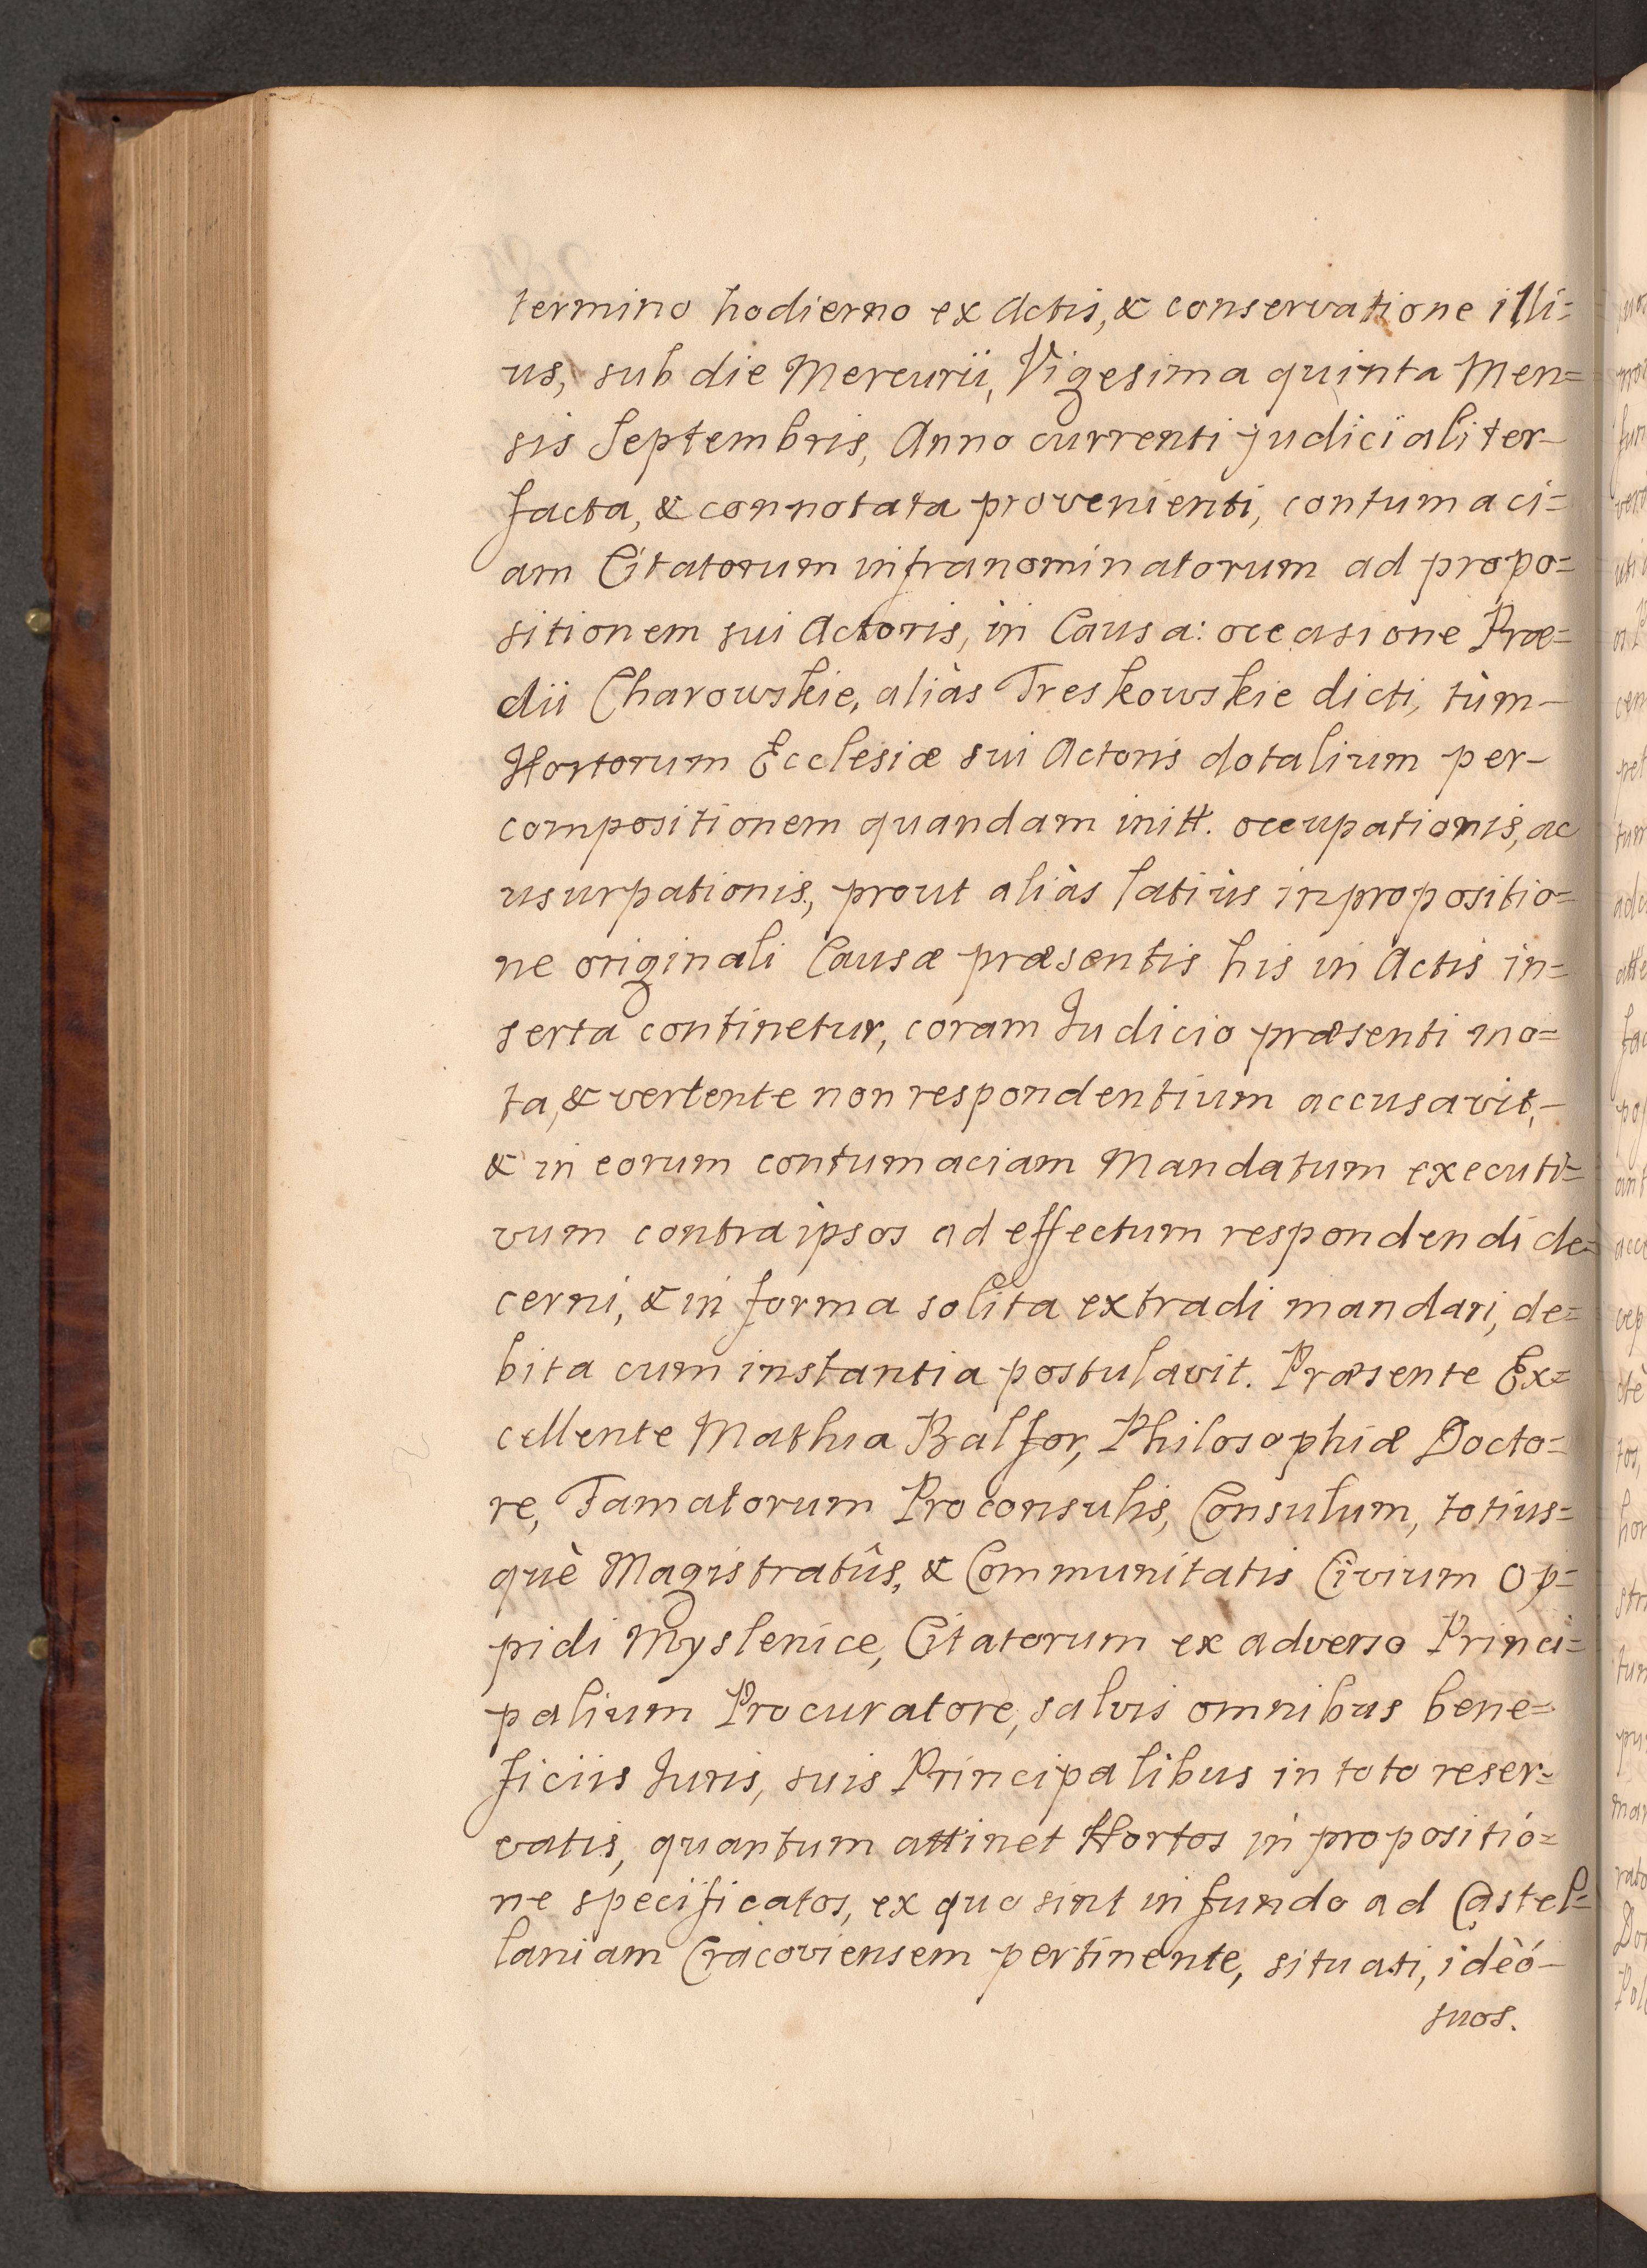 termino hodierno ex Actis, & conservatione illi=
us, sub die Mercurii, Vigesima quinta Men=
sis Septembris, Anno currenti judicialiter-
facta, & connotata provenienti, contumaci=
am Citatorum infranominatorum ad propo=
sitionem sui Actoris, in Causa: occasione Præ=
dii Charowskie, aliàs Treskowskie dicti, tùm-
Hortorum Ecclesiæ sui Actoris dotalium per-
compositionem quandam initt. occupationis, ac
usurpationis, prout aliàs latiùs in propositio=
ne originali Causæ præsentis his in Actis in=
serta continetur, coram Judicio præsenti mo=
ta, & vertente non respondentium accusavit,-
& in eorum contumaciam Mandatum executi=
vum contra ipsos ad effectum respondendi de=
cerni, & in forma solita extradi mandari, de=
bita cum instantia postulavit. Præsente Ex=
cellente Mathia Balfor, Philosophiæ Docto=
re, Famatorum Proconsulis, Consulum, totius=
què Magistratûs, & Communitatis Civium Op=
pidi Myslenice, Citatorum ex adverso Princi=
palium Procuratore, salvis omnibus bene=
ficiis Juris, suis Principalibus in toto reser=
vatis, quantum attinet Hortos in propositió=
ne specificatos, ex quo sint in fundo ad Castel=
laniam Cracoviensem pertinente, situati, ideó-
suos.